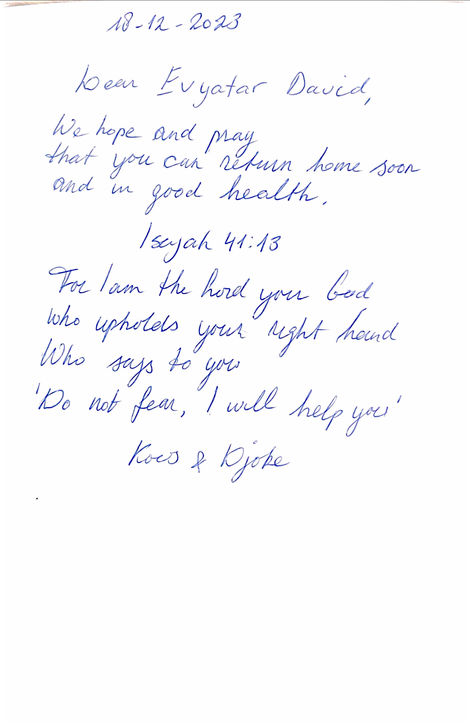 18-12-2023
Dear Evyatar David,
We hope and pray
that you can return home soon
and in good health.
Isajah 41:13
For I am the Lord your God
who upholds your right hand
Who says to you
'Do not fear, I will help you'
Koos & Djoke